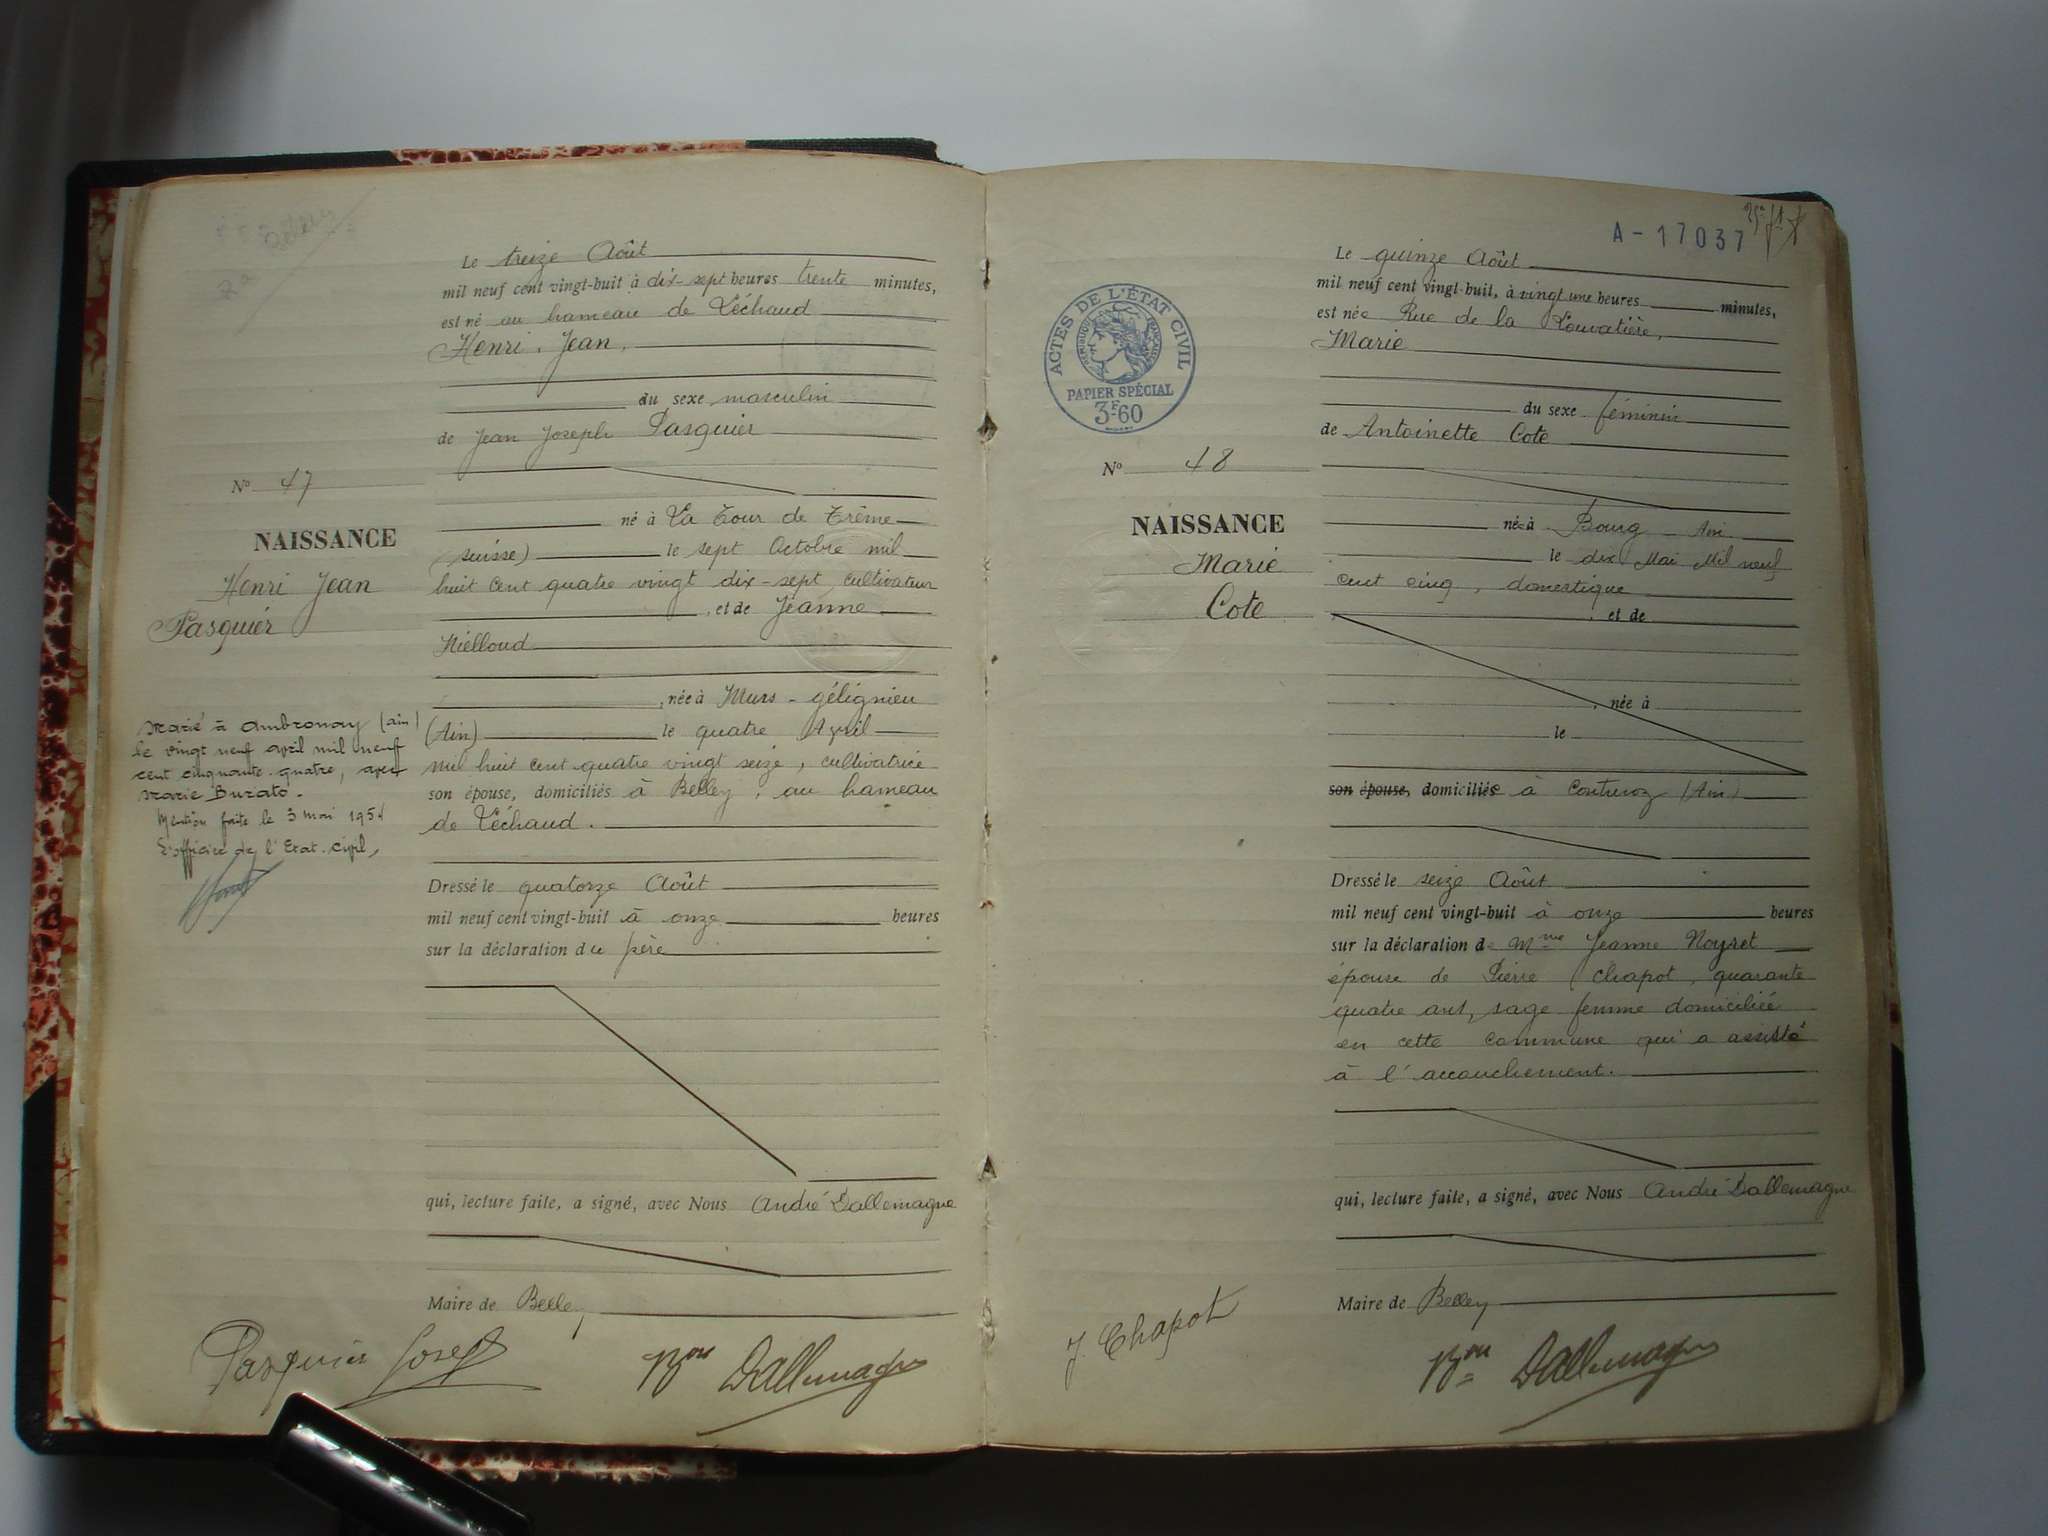 Le treize Août
mil neuf cent vingt-huit à dix-sept heures trente minutes,
est né au hameau de Léchaud
Henri, Jean,
du sexe masculin
de Jean Joseph Pasquier
N° 47
NAISSANCE
Henri Jean
Pasquier
né à La Tour de Trême
(Suisse) le sept Octobre mil
huit cent quatre vingt dix-sept, cultivateur
, et de Jeanne
Niélloud
, née à Murs-gélignieu
(Ain) le quatre Avril
mil huit cent quatre vingt seize, cultivatrice
son épouse, domiciliés à Belley, au hameau
de Léchaud.
Marié à Ambronay (ain)
le vingt neuf avril mil neuf
cent cinquante-quatre, avec
Marie Burato.
Mention faite le 3 mai 1954
L'officier de l'Etat-civil,
Dressé le quatorze Août
mil neuf cent vingt-huit à onze heures
sur la déclaration du père
qui, lecture faite, a signé, avec Nous André Dallemagne
Maire de Belley
Pasquier Joseph
Bon Dallemagne
A-17037
ACTES DE L'ÉTAT CIVIL
RÉPUBLIQUE FRANÇAISE
PAPIER SPÉCIAL
3F60
Le quinze Août
mil neuf cent vingt-huit, à vingt une heures minutes,
est née Rue de la Louvatière,
Marie
du sexe féminin
de Antoinette Cote
N° 48
NAISSANCE
Marie
Cote
née à Bourg Ain
le dix Mai Mil neuf
cent cinq, domestique
, et de
, née à
le
son épouse, domiciliée à Contrevoz (Ain)
Dressé le seize Août
mil neuf cent vingt-huit à onze heures
sur la déclaration de Mme Jeanne Noyret
épouse de Pierre Chapot, quarante
quatre ans, sage femme domiciliée
en cette commune qui a assisté
à l'accouchement.
qui, lecture faite, a signé, avec Nous André Dallemagne
Maire de Belley
J. Chapot
Bon Dallemagne